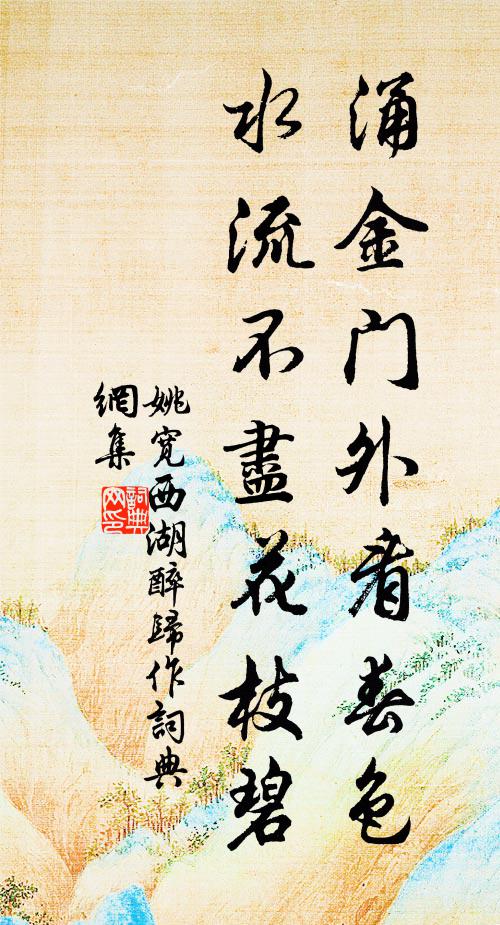 涌金门外看春色
水流不盡花枝碧
姚寬西湖醉歸作詞典
網集
詞典
网印